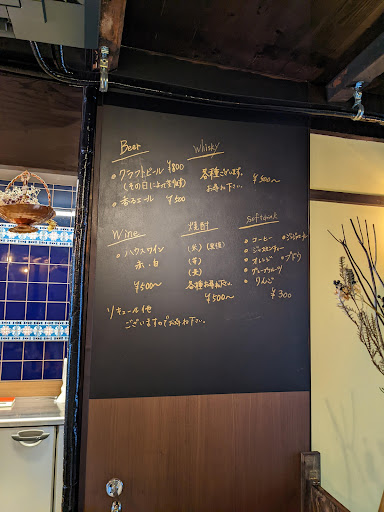 Beer
・クラフトビール ¥800
(その日によって変わります)
・香るエール ¥500
Whisky
各種ございます。
お尋ね下さい。
¥500〜
Wine
・ハウスワイン
赤・白
¥500〜
焼酎
(米)
(芋)
(麦)
各種お尋ね下さい
¥500〜
Softdrink
・コーヒー
・ジンジャーエール
・ジャスミンティー
・オレンジ ・ブドウ
・グレープフルーツ
・りんご
¥300
リキュール他
ございますのでお尋ね下さい。